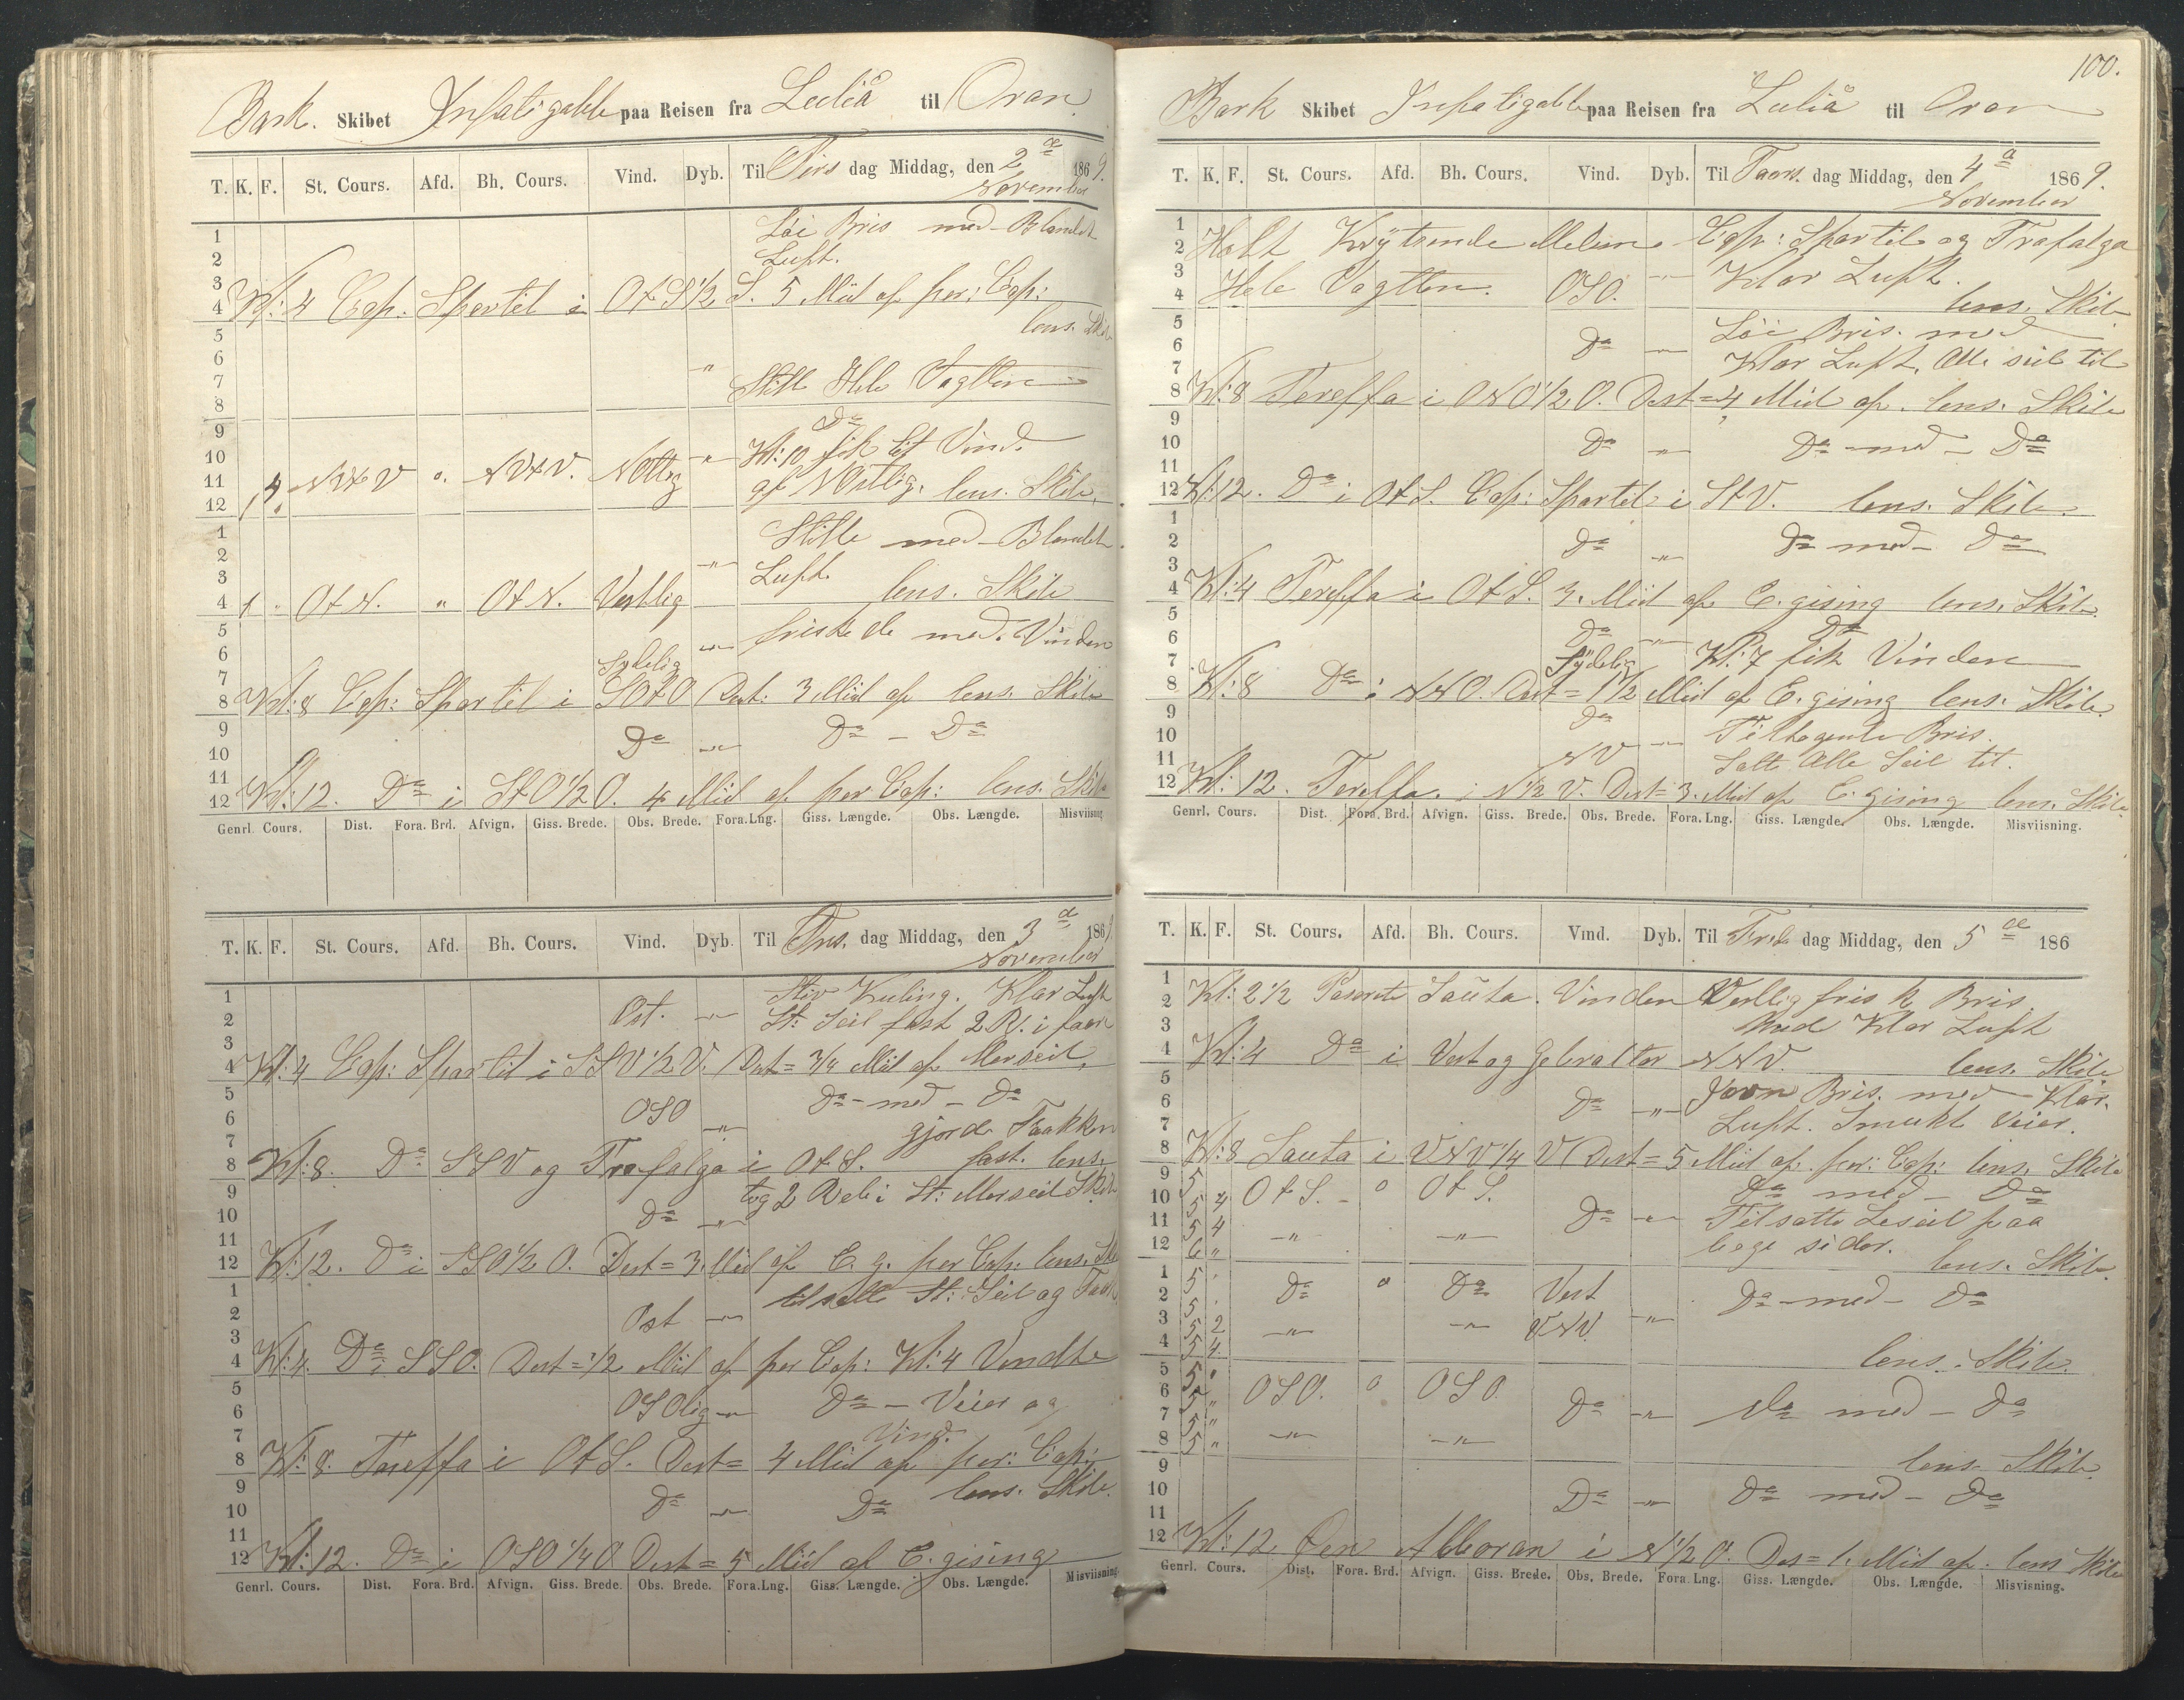 Bark. Skibet Infatigable paa Reisen fra Luleå til Oran
T. K. F. St. Cours. Afd. Bh. Cours. Vind. Dyb. Til Tirs dag Middag, den 2de November 1869.
1 Løi Bris med Blandet
2 Luft.
3
4 Kl: 4 Cap. Spartel i OtS 1/2 S. 5 Miil af per: Cap:
5 lens. Skib
6
7 " Stille Hele Vagtten
8
9 Do
10 Kl: 10 fik let Vind
11 4 NVtV o. NVtV. NOllig " af NOstlig. lens. Skib.
12 1
1 Stille med Blandet
2 "
3 Luft.
4 1 " OtN. " OtN. Vestlig lens. Skib
5 friskede med Vinden
6 Sydelig "
7
8 Kl: 8 Cap: Spartel i SOtO Dest: 3 Miil af lens. Skib
9 Do " Do - Do
10
11
12 Kl: 12. Do i StO 1/2 O. 4 Miil af per Cap: lens. Skib
Genrl. Cours. Dist. Fora. Brd. Afvign. Giss. Brede. Obs. Brede. Fora. Lng. Giss. Længde. Obs. Længde. Misviisning
T. K. F. St. Cours. Afd. Bh. Cours. Vind. Dyb. Til Ons. dag Middag, den 3de November 1869
1 Stiv Kuling. Klar Luft
2 Ost. " St: Seil fast 2 R. i faar
3
4 Kl: 4 Cap: Spartel i SSV 1/2 V. Dest = 3/4 Miil af Merseil,
5 Do - med - Do
6 OSO " gjorde Faakken
7
8 Kl: 8. Do SSV og Trafalga i OtS. fast. lens.
9 tog 2 Reb i St: Merseil Skib
10 Do "
11
12 Kl: 12. Do i SSO 1/2 O. Dest = 3. Miil af C. g. per Cap: lens. Skib
1 tilsatte St: Seil og Faak
2 Ost "
3
4 Kl: 4. Do i SSO. Dest = 1/2 Miil af per Cap: Kl: 4 Vendte
5 OSOlig " Do - Veier og
6
7 Vind.
8 Kl: 8. Tareffa i OtS. Dest = 4 Miil af per: Cap:
9 lens. Skib.
10 Do " Do
11
12 Kl: 12. Do i OSO 1/4 O. Dest = 5 Miil af C. gising
Genrl. Cours. Dist. Fora. Brd. Afvign. Giss. Brede. Obs. Brede. Fora. Lng. Giss. Længde. Obs. Længde. Misviisning
100.
Bark Skibet Infatigable paa Reisen fra Luliå til Oran
T. K. F. St. Cours. Afd. Bh. Cours. Vind. Dyb. Til Tors. dag Middag, den 4de November 1869.
1
2 Holt Krytsende Melem Cap: Spartel og Trafalga
3 Hele Vagtten. OSO. " Klar Luft.
4 lens. Skib
5 Løi Bris. med
6 Do "
7 Klar Luft. Alle seil til
8 Kl: 8 Tereffa i ONO 1/2 O. Dest = 4 Miil af. lens. Skib
9
10 Do " Do med - Do
11
12 Kl: 12. Do i OtS. Cap: Spartel i StV. lens. Skib.
1
2 Do " Do med - Do
3
4 Kl: 4 Tereffa i OtS. 3. Miil af C. gising lens. Skib.
5
6 Do " Do
7 Sydelig Kl: 7 fik Vinden
8 Kl: 8 Do i NNO. Dest = 1 1/2 Miil af C. gising lens. Skib.
9 Do
10 " Tiltagende Bris.
11 NV Satte Alle Seil til.
12 Kl: 12. Tereffa. i N 1/2 V. Dest = 3. Miil af C. gising lens. Skib.
Genrl. Cours. Dist. Fora. Brd. Afvign. Giss. Brede. Obs. Brede. Fora. Lng. Giss. Længde. Obs. Længde. Misviisning.
T. K. F. St. Cours. Afd. Bh. Cours. Vind. Dyb. Til Fre dag Middag, den 5de 186
1
2 Kl: 2 1/2 Paserete Sauta. Vinden Vestlig frisk Bris.
3 Med Klar Luft
4 Kl: 4 Do i Vest og Gebraltar NNV. lens. Skib
5
6 Do " Jovn Bris. med Klar.
7 Luft. Smukt Veier.
8 Kl: 8 Sauta i VNV 1/4 V Dest = 5 Miil af. per: Cap: lens. Skib
9 5 OtS. - o OtS. Do med - Do
10 5 4 Do " Tilsatte Leseil paa
11 5 4 " "
12 6 " bege sider. lens. Skib.
1 5 " Do o Do Vest Do - med - Do
2 5 "
3 5 2 " " VNV.
4 5 4 lens. Skib.
5 5 "
6 5 " OSO. o OSO. Do " Do med - Do
7 5 "
8 5 " " "
9 lens. Skib.
10 Do " Do med - Do
11
12 Kl: 12 Øen Alboran i N 1/2 O. Des = 1. Miil af. lens Skib
Genrl. Cours. Dist. Fora. Brd. Afvign. Giss. Brede. Obs. Brede. Fora. Lng. Giss. Længde. Obs. Længde. Misvisning.